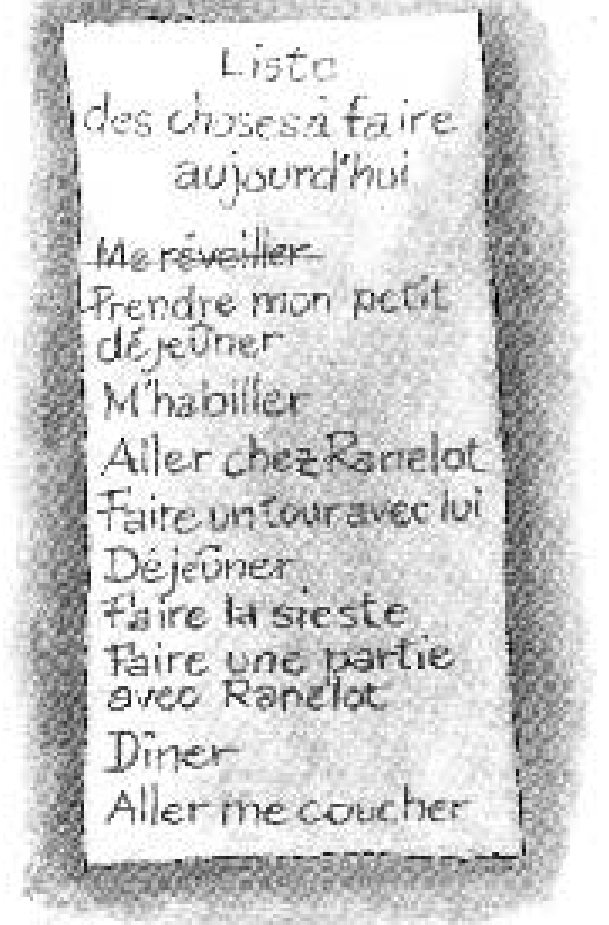 Liste
des choses à faire
aujourd'hui
Me réveiller
Prendre mon petit
déjeûner
M'habiller
Aller chez Ranelot
Faire un tour avec lui
Déjeûner
Faire la sieste
Faire une partie
avec Ranelot
Dîner
Aller me coucher